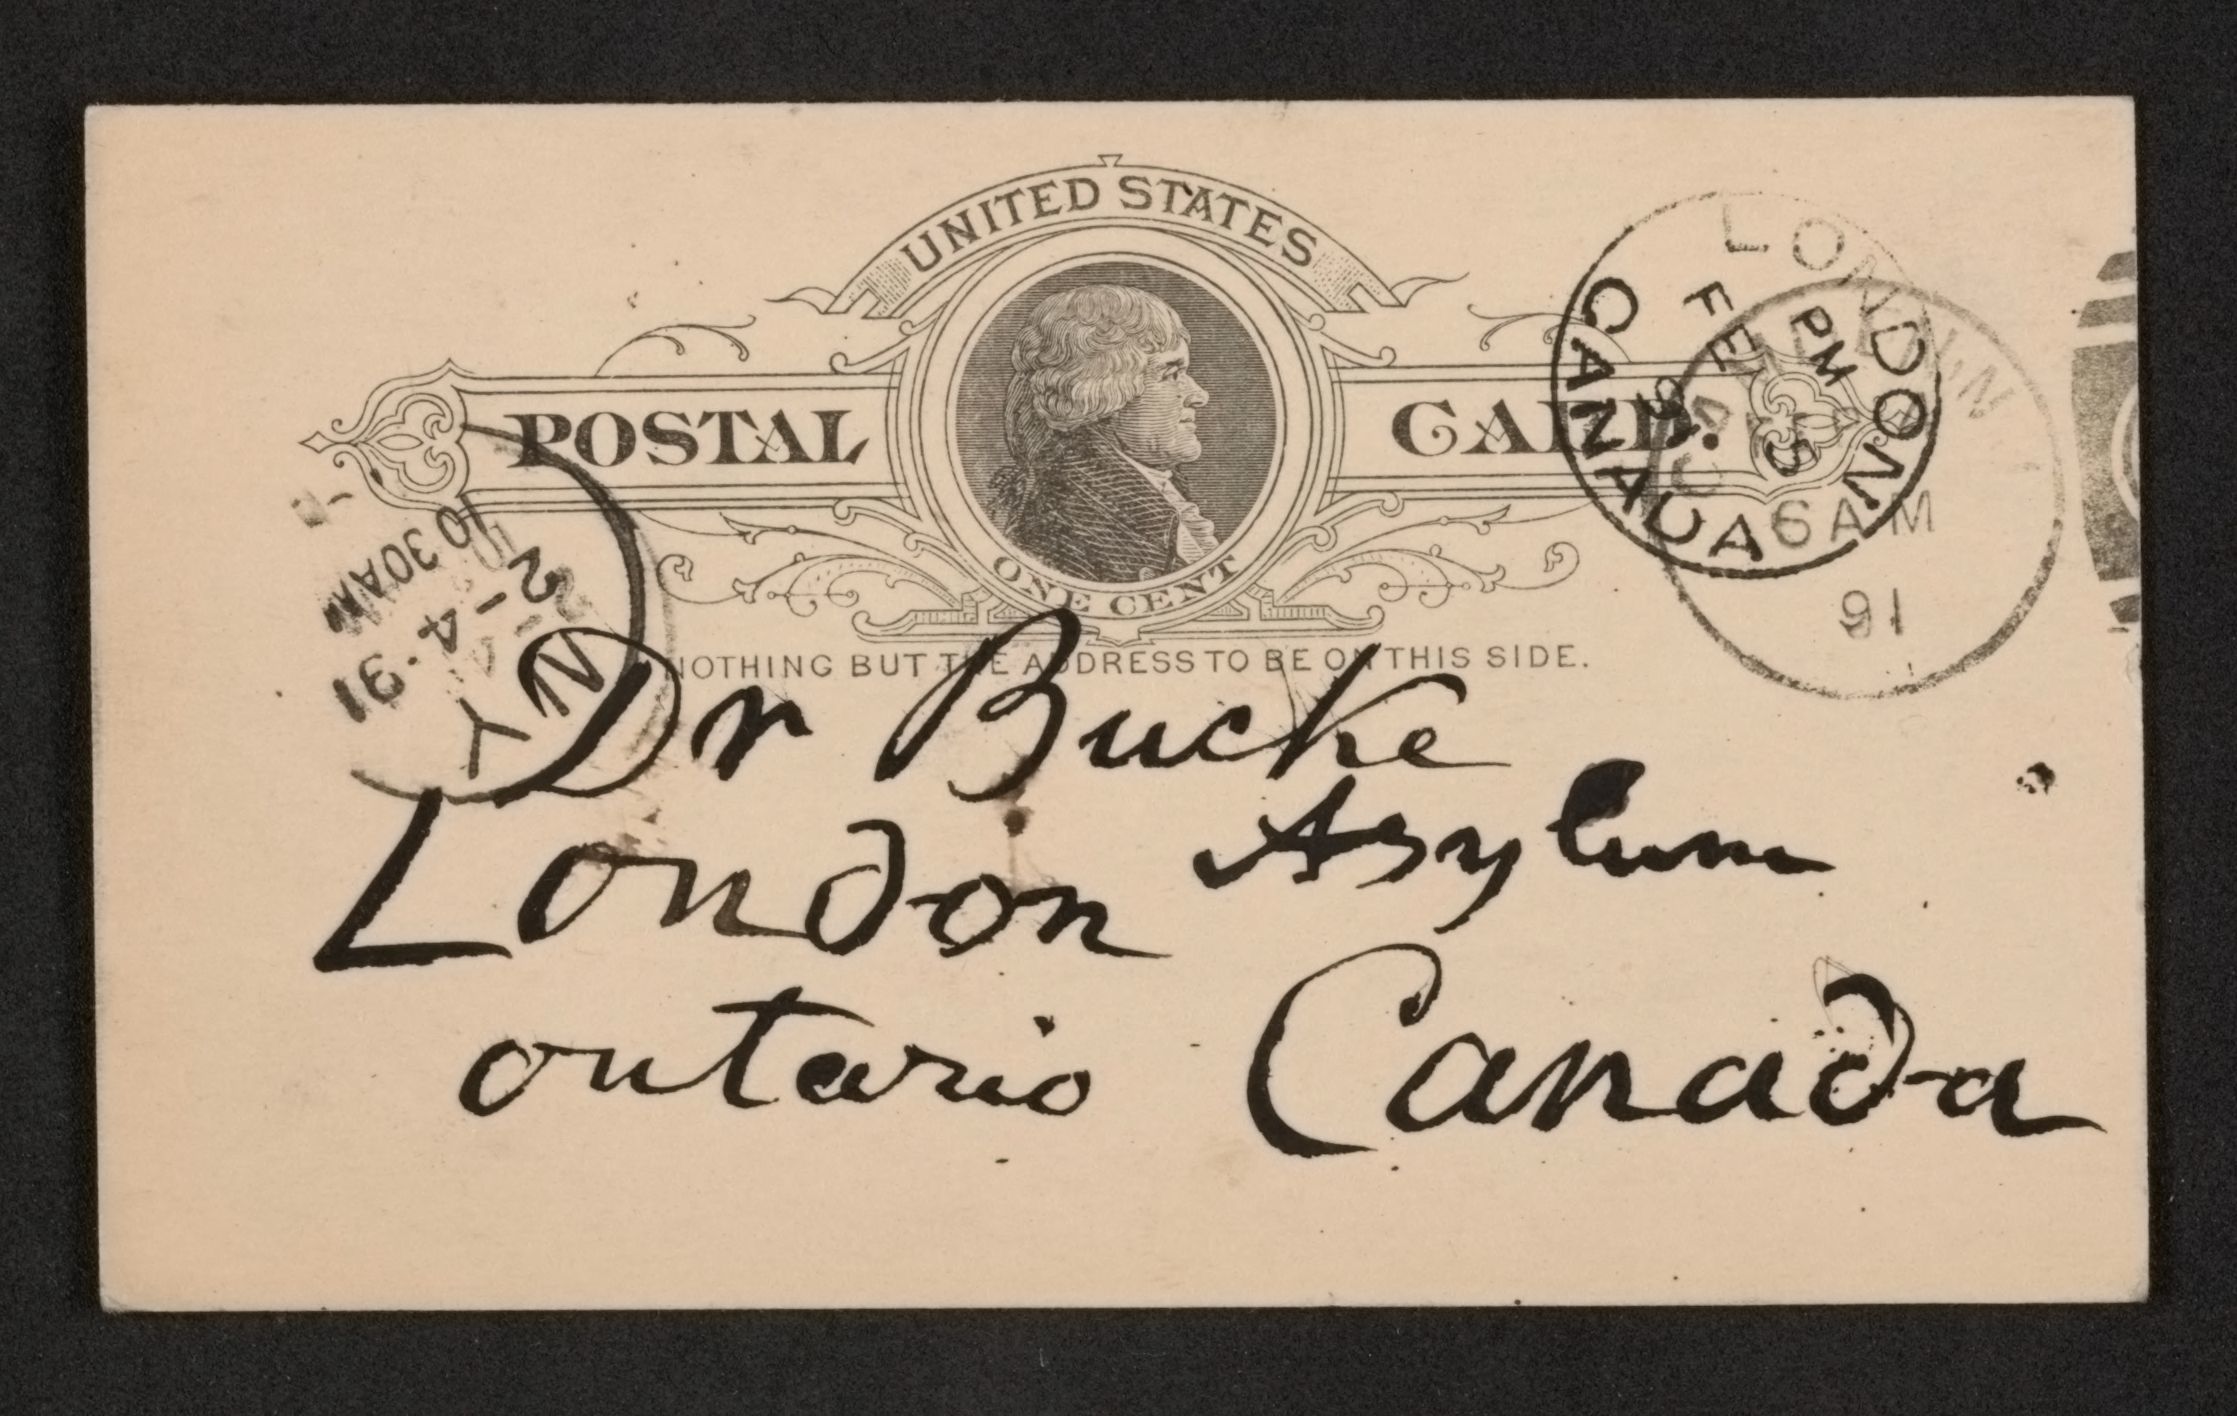 UNITED STATES
POSTAL CARD
ONE CENT
NOTHING BUT THE ADDRESS TO BE ON THIS SIDE.
LONDON
PM
FE 5
91
CANADA
6 AM
91
N Y
2-4-91
10 30AM
Dr Bucke
London Asylum
Ontario Canada